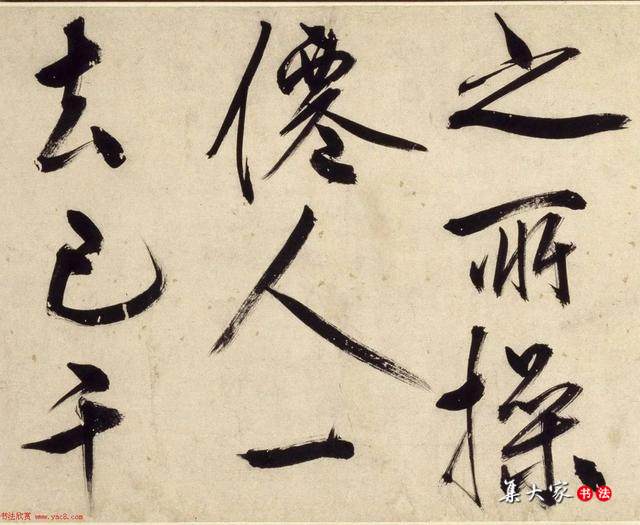 之所操
僊人一
去已千
集大家书法
书法欣赏 www.yac8.com